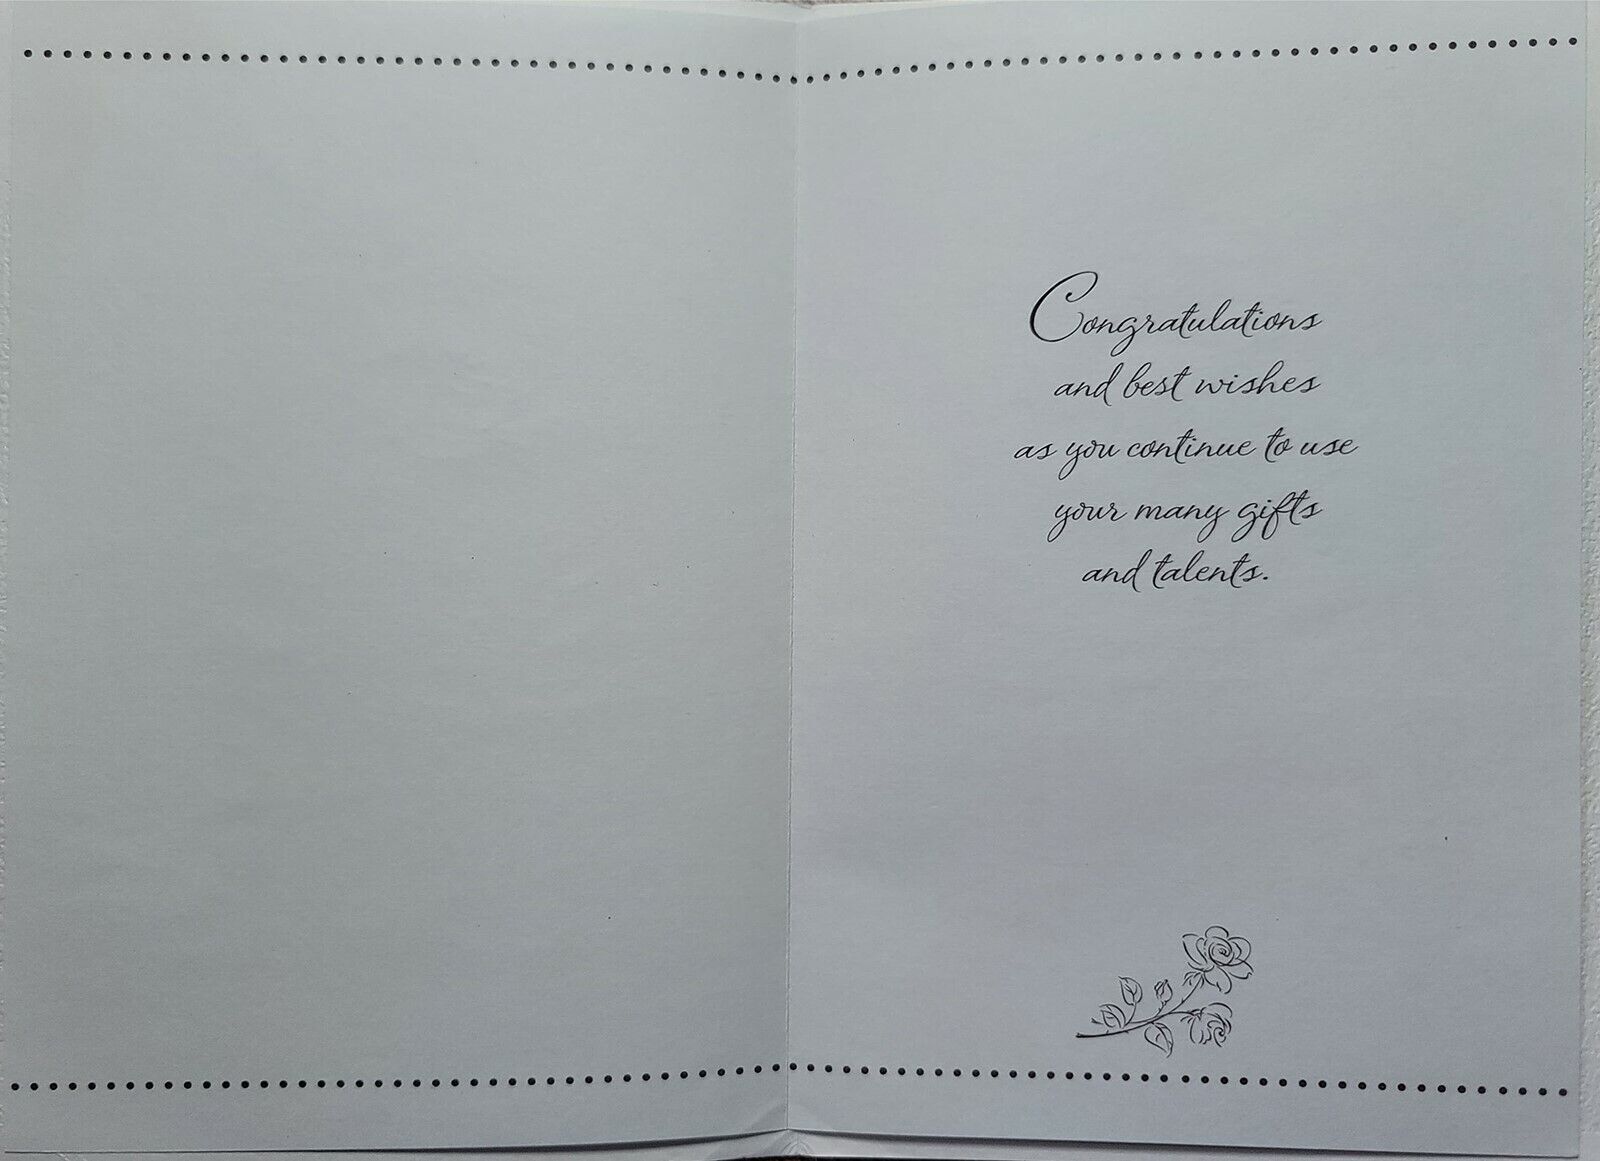 Congratulations
and best wishes
as you continue to use
your many gifts
and talents.